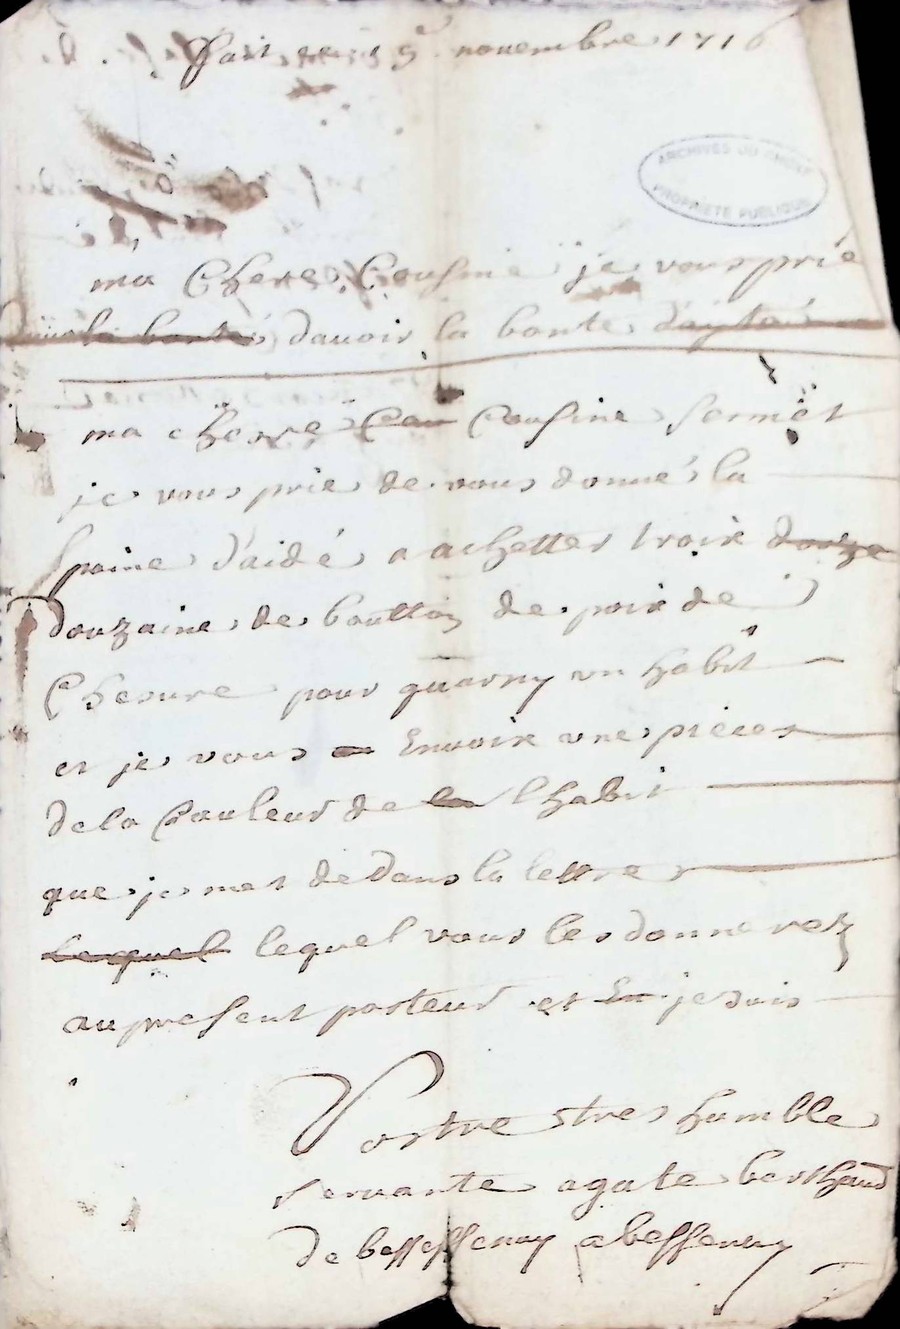 fait 9e novembre 1716
ARCHIVES DU
PROPRIETE PUBLIQUE
ma Chere Cousine je vous prié
la bonté davoir la bonte
ma chere Cou Cousine
je vous prie de vous donné la
paine d'aidé a achetter troix douze
douzaine de boutton de poix de
Chevre pour guarny vn habit
et je vous Envoix vne pieces
de la Couleur de la lhabit
que je met dedans la lettre
lequel lequel vous les donnerez
au present porteur et En je suis
Vostre stres humble
servante agate berthaud
de bessessenay a bessenay